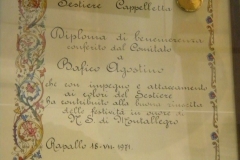 Sestiere Cappelletta
Diploma di benemerenza
conferito dal Comitato
a
Bafico Agostino
che con impegno e attaccamento
ai colori del Sestiere
ha contribuito alla buona riuscita
delle festività in onore di
N.S. di Montallegro
Rapallo 18-VII-1971